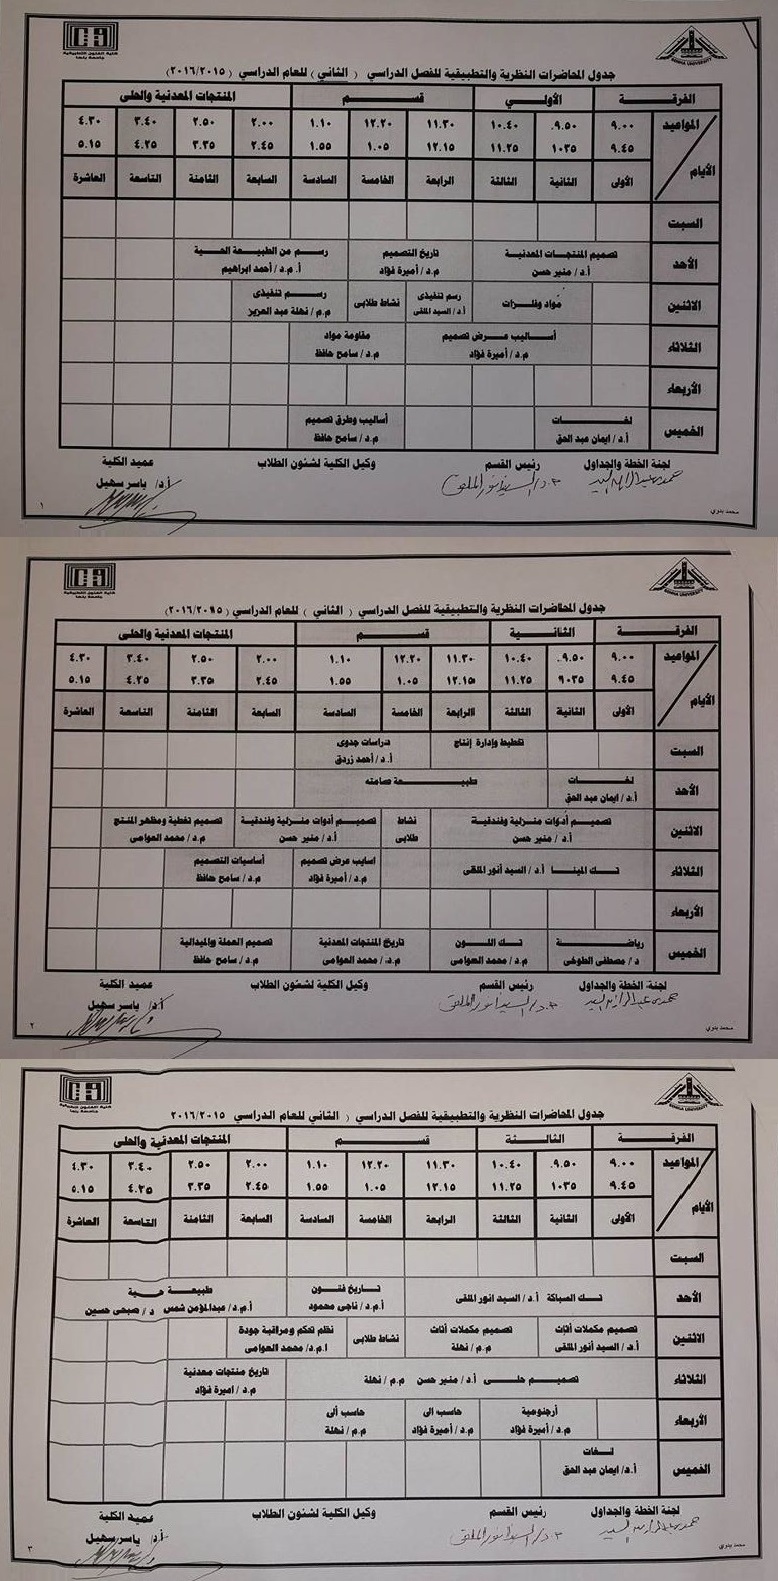 كلية الفنون التطبيقية
جامعة بنها
BENHA UNIVERSITY
جدول المحاضرات النظرية والتطبيقية للفصل الدراسي ( الثاني ) للعام الدراسي ( ٢٠١٦/٢٠١٥)
الفرقة الأولي قسم المنتجات المعدنية والحلى
المواعيد ٩.٠٠ ٩.٥٠. ١٠.٤٠ ١١.٣٠ ١٢.٢٠ ١.١٠ ٢.٠٠ ٢.٥٠ ٣.٤٠ ٤.٣٠
٩.٤٥ ١٠٣٥ ١١.٢٥ ١٢.١٥ ١.٠٥ ١.٥٥ ٢.٤٥ ٣.٣٥ ٤.٢٥ ٥.١٥
الأيام الأولى الثانية الثالثة الرابعة الخامسة السادسة السابعة الثامنة التاسعة العاشرة
السبت
الأحد تصميم المنتجات المعدنية تاريخ التصميم رسم من الطبيعة الحية
أ.د/ منير حسن م.د/ أميرة فؤاد أ.م.د/ أحمد ابراهيم
الاثنين مواد وفلزات رسم تنفيذى نشاط طلابى رسم تنفيذى
أ.د/ السيد الملقى م.م/ نهلة عبد العزيز
الثلاثاء أساليب عرض تصميم مقاومة مواد
م.د/ أميرة فؤاد م.د/ سامح حافظ
الأربعاء
الخميس لغات أساليب وطرق تصميم
أ.د/ ايمان عبد الحق م.د/ سامح حافظ
لجنة الخطة والجداول رئيس القسم وكيل الكلية لشئون الطلاب عميد الكلية
أ.د/ ياسر سهيل
محمد بدوي
١
كلية الفنون التطبيقية
جامعة بنها
BENHA UNIVERSITY
جدول المحاضرات النظرية والتطبيقية للفصل الدراسي ( الثاني ) للعام الدراسي (٢٠١٦/٢٠١٥)
الفرقة الثانية قسم المنتجات المعدنية والحلى
المواعيد ٩.٠٠ ٩.٥٠. ١٠.٤٠ ١١.٣٠ ١٢.٢٠ ١.١٠ ٢.٠٠ ٢.٥٠ ٣.٤٠ ٤.٣٠
٩.٤٥ ٩٠٣٥ ١١.٢٥ ١٢.١٥ ١.٠٥ ١.٥٥ ٢.٤٥ ٣.٣٥ ٤.٢٥ ٥.١٥
الأيام الأولى الثانية الثالثة الرابعة الخامسة السادسة السابعة الثامنة التاسعة العاشرة
السبت تخطيط وإدارة إنتاج دراسات جدوى
أ.د/ أحمد زردق
الأحد لغات طبيعة صامته
أ.د/ ايمان عبد الحق
الاثنين تصميم أدوات منزلية وفندقية نشاط تصميم أدوات منزلية وفندقية تصميم تغطية ومظهر المنتج
أ.د/ منير حسن طلابى أ.د/ منير حسن م.د/ محمد العوامى
الثلاثاء تك المينا أ.د/ السيد أنور الملقى اساليب عرض تصميم أساسيات التصميم
م.د/ أميرة فؤاد م.د/ سامح حافظ
الأربعاء
الخميس رياضة تك اللون تاريخ المنتجات المعدنية تصميم العملة والميدالية
د/ مصطفى الطوخى م.د/ محمد العوامى م.د/ محمد العوامى م.د/ سامح حافظ
لجنة الخطة والجداول رئيس القسم وكيل الكلية لشئون الطلاب عميد الكلية
أ.د/ ياسر سهيل
محمد بدوي
٢
كلية الفنون التطبيقية
جامعة بنها
BENHA UNIVERSITY
جدول المحاضرات النظرية والتطبيقية للفصل الدراسي ( الثاني للعام الدراسي ٢٠١٦/٢٠١٥
الفرقة الثالثة قسم المنتجات المعدنية والحلى
المواعيد ٩.٠٠ ٩.٥٠. ١٠.٤٠ ١١.٣٠ ١٢.٢٠ ١.١٠ ٢.٠٠ ٢.٥٠ ٣.٤٠ ٤.٣٠
٩.٤٥ ١٠٣٥ ١١.٢٥ ١٢.١٥ ١.٠٥ ١.٥٥ ٢.٤٥ ٣.٣٥ ٤.٢٥ ٥.١٥
الأيام الأولى الثانية الثالثة الرابعة الخامسة السادسة السابعة الثامنة التاسعة العاشرة
السبت
الأحد تك السباكة أ.د/ السيد انور الملقى تاريخ فنون طبيعة حية
أ.م.د/ ناجى محمود أ.م.د/ عبدالمؤمن شمس د/ صبحى حسين
الاثنين تصميم مكملات أثاث تصميم مكملات أثاث نشاط طلابى نظم تحكم ومراقبة جودة
أ.د/ السيد أنور الملقى م.م/ نهلة ا.م.د/ محمد العوامى
الثلاثاء تصميم حلى أ.د/ منير حسن م.م/ نهلة تاريخ منتجات معدنية
م.د/ اميرة فؤاد
الأربعاء أرجنومية حاسب الى حاسب ألى
م.د/ أميرة فؤاد م.د/ أميرة فؤاد م.م/ نهلة
الخميس لغات
أ.د/ ايمان عبد الحق
لجنة الخطة والجداول رئيس القسم وكيل الكلية لشئون الطلاب عميد الكلية
أ.د/ ياسر سهيل
محمد بدوي
٣